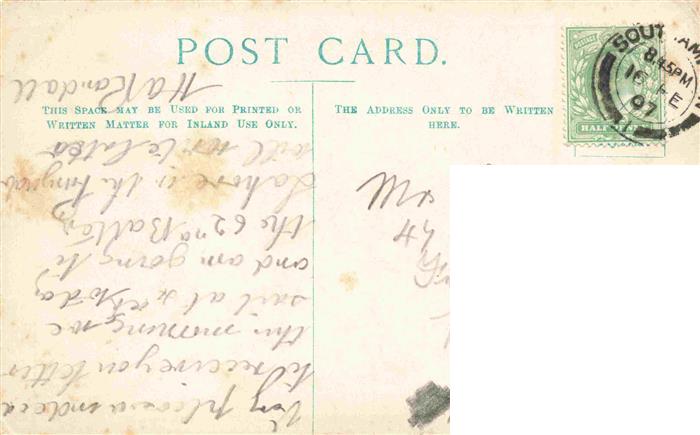 POST CARD.
THIS SPACE MAY BE USED FOR PRINTED OR
WRITTEN MATTER FOR INLAND USE ONLY.
THE ADDRESS ONLY TO BE WRITTEN
HERE.
SOUT AM
8.45PM
16 FE
07
HALF PENNY
Very pleased indeed
to receive you letter
this morning, we
sail at 4 today
and am going to
the 62nd Batt'ry
Lahore in the Punjab
will write later
H A Randall